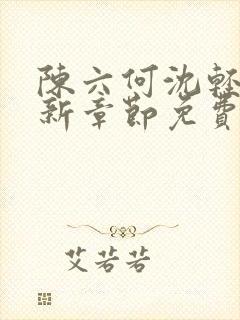 陳六何沈輕
新章節免費
艾若若